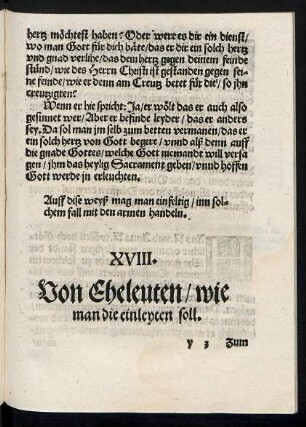 hertz möchtest haben: Oder were es dir ein dienst/
wo man Gott für dich bäte/das er dir ein solch hertz
vnd gnad verlihe/das dein hertz gegen deinem feinde
stünd/wie des Herrn Christi ist gestanden gegen sei-
ne feinde/wie er denn am Creutz betet für die/so jhn
creutzigten:
Wenn er hie spricht: Ja/er wölt das er auch also
gesinnet wer/Aber er befinde leyder/das er anders
sey. Da sol man jm selb zum betten vermanen/das er
ein solch hertz von Gott begere/vnnd alß denn auff
die gnade Gottes/welche Gott niemande will versa-
gen/jhm das heylig Sacrament geben/vnnd hoffen
Gott werde jn erleuchten.
Auff dise weyß mag man einfeltig/inn sol-
chem fall mit den armen handeln.
XVIII.
Von Eheleuten/wie
man die einleyten soll.
y 3 Zum